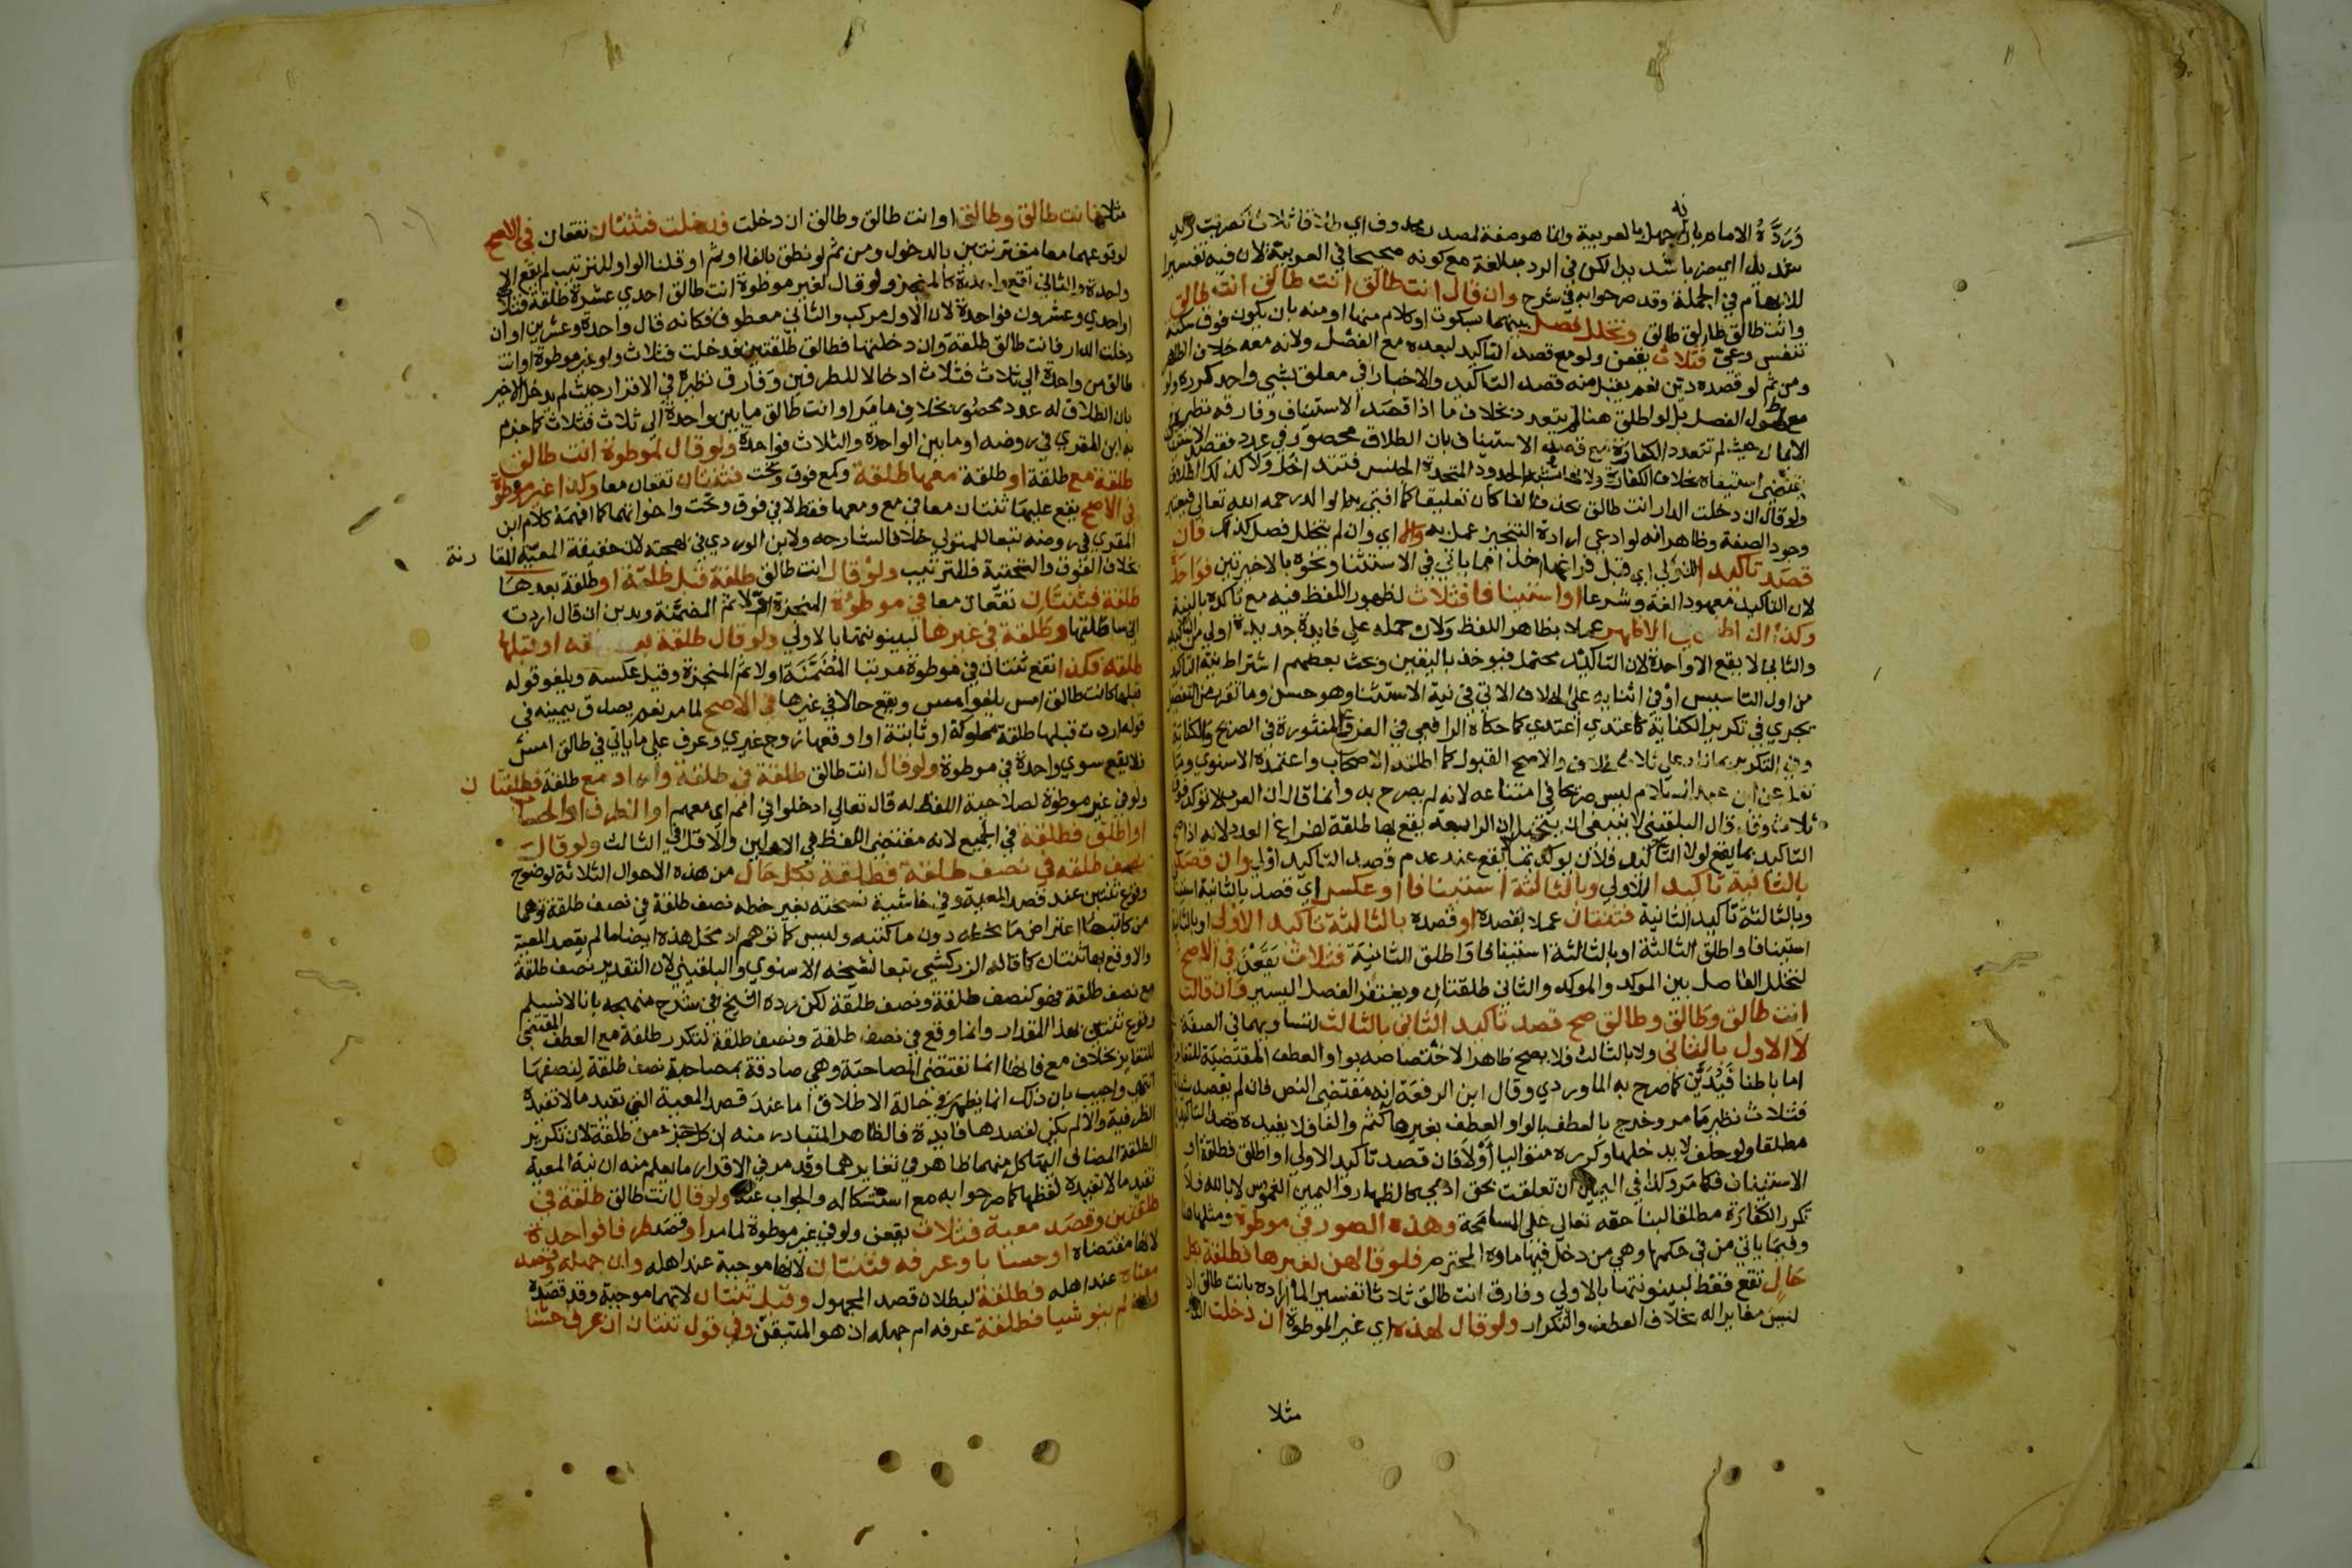 ورده الامام بانه جهل بالعربية وانما هو صفة لمصدر محذوف اي طلاقا ثلاثا كضربت زيدا
شديدا اي ضربا شديدا لكن في الرد مبالغة مع كونه صحيحا في العربية لان فيه تفسيرا
للابهام في الجملة وقد صرحوا به في شرح وان قال انت طالق انت طالق انت طالق
وانت طالق طالق طالق وتخلل فصل بينهما بسكوت او كلام منها او منه بان يكون فوق سكتة
تنفس وعي فثلاث يقعن ولو مع قصد التاكيد لبعده مع الفصل ولانه معه خلاف الظاهر
ومن ثم لو قصده دين نعم يقبل منه قصد التاكيد والاخبار في معلق بشي واحد كرره ولو
مع طول الفصل بل لو اطلق هنا لم يتعدد بخلاف ما اذا قصد الاستيناف وفارق نظيره في
الايمان حيث لم تتعدد الكفارة مع قصد الاستيناف بان الطلاق محصور في عدد فقصد الاستيناف
يقتضي استيفاه بخلاف الكفارة ولانها تشبه الحدود المتحدة الجنس فتتداخل ولا كذلك الطلاق
ولو قال ان دخلت الدار انت طالق بحذف الفا كان تعليقا كما افتى به الوالد رحمه الله تعالى فيعتبر
وجود الصفة وظاهره انه لو ادعى ارادة التنجيز عمل به والا اي وان لم يتخلل فصل كذلك فان
قصد تاكيدا للاولى اي قبل فراغها اخذا مما ياتي في الاستثنا ونحوه بالاخيرتين فواحدة
لان التاكيد معهود لغة وشرعا او استينافا فثلاث لظهور اللفظ فيه مع تاكده بالنية
وكذا ان اطلق في الاظهر عملا بظاهر اللفظ ولان حمله على فايدة جديدة اولى من التاكيد
والثاني لا يقع الا واحدة لان التاكيد محتمل فيوخذ باليقين وبحث بعضهم اشتراط نية التاكيد
من اول التاسيس او في اثنايه على الخلاف الاتي في نية الاستثنا وهو حسن وما تقرر من التفصيل
يجري في تكرير الكناية كاعتدي اعتدي كما حكاه الرافعي في الفروع المنثورة في الصريح والكناية
وفي التكرير بما زاد على ثلاث خلاف والاصح القبول كما اطلقه الاصحاب واعتمده الاسنوي وما
نقل عن ابن عبد السلام ليس صريحا في امتناعه لانه لم يصرح به وانما قال ان العرب لا تؤكد فوق
ثلاث وقد قال البلقيني لا ينبغي ان يتخيل ان الرابعة يقع بها طلقة لفراغ العدد لانه اذا صح
التاكيد بما يقع لولا التاكيد فلان يؤكد بما لا يقع عند عدم قصد التاكيد اولى وان قصد
بالثانية تاكيدا للاولى وبالثالثة استينافا او عكس اي قصد بالثانية استينافا
وبالثالثة تاكيد الثانية فثنتان عملا بقصده او قصد بالثالثة تاكيد الاولى او بالثانية
استينافا واطلق الثالثة او بالثالثة استينافا واطلق الثانية فثلاث يقعن في الاصح
لتخلل الفاصل بين الموكد والموكد والثاني طلقتان ويغتفر الفصل اليسير وان قال
انت طالق وطالق وطالق صح قصد تاكيد الثاني بالثالث لتساويهما في الصيغة
لا الاول بالثاني ولا بالثالث فلا يصح ظاهرا لاختصاصه بواو العطف المقتضية للتغاير
اما باطنا فيدين كما صرح به الماوردي وقال ابن الرفعة انه مقتضى النص فان لم يقصد شيا
فثلاث نظير ما مر وخرج بالعطف بالواو العطف بغيرها كثم والفا فلا يفيده قصد التاكيد
مطلقا ولو حلف لا يدخلها وكرره متواليا او لا فان قصد تاكيد الاولى او اطلق فطلقة او
الاستيناف فكما مر وكذا في اليمين ان تعلقت بحق ادمي كالظهار واليمين الغموس لا بالله فلا
تكرر الكفارة مطلقا لبنا حقه تعالى على المسامحة وهذه الصور في موطوة ومثلها هنا
وفيما ياتي من في حكمها وهي من دخل فيها ماوه المحترم فلو قالهن لغيرها فطلقة بكل
حال تقع فقط لبينونتها بالاولى وفارق انت طالق ثلاثا تفسير لما اراده بانت طالق اذ
ليس مغايرا له بخلاف العطف والتكرار ولو قال لهذه اي غير الموطوة ان دخلت الدار
مثلا
مثلا فانت طالق وطالق او انت طالق وطالق ان دخلت فدخلت فثنتان تقعان في الاصح
لوقوعهما معا مقترنتين بالدخول ومن ثم لو نطق بالفا او ثم او قلنا الواو للترتيب لم يقع الا
واحدة والثاني تقع واحدة كالمنجز ولو قال لغير موطوة انت طالق احدي عشرة طلقة فثلاث
او احدي وعشرون فواحدة لان الاول مركب والثاني معطوف فكانه قال واحدة وعشرين او ان
دخلت الدار فانت طالق طلقة وان دخلتها فطالق طلقتين فدخلت فثلاث ولو غير موطوة او انت
طالق من واحدة الى ثلاث فثلاث ادخالا للطرفين وفارق نظيره في الاقرار حيث لم يدخل الاخير
بان الطلاق له عدد محصور بخلاف ما مر او انت طالق ما بين واحدة الى ثلاث فثلاث كما جزم
به ابن المقري في روضه او ما بين الواحدة والثلاث فواحدة ولو قال لموطوة انت طالق
طلقة مع طلقة او طلقة معها طلقة وكمع فوق وتحت فثنتان تقعان معا وكذا غير موطوة
في الاصح يقع عليها ثنتان معا في مع ومعها فقط لا في فوق وتحت واخواتهما كما افهمه كلام ابن
المقري في روضه تبعا للمتولي خلافا لشارحه ولابن الوردي في بهجته لان حقيقة المعية المقارنة
بخلاف الفوق والتحتية فللترتيب ولو قال انت طالق طلقة قبل طلقة او طلقة بعدها
طلقة فثنتان تقعان معا في موطوة المنجزة اولا ثم المضمنة ويدين ان قال اردت
اني ساطلقها وطلقة في غيرها لبينونتها بالاولى ولو قال طلقة بعد طلقة او قبلها
طلقة فكذا تقع ثنتان في موطوة مرتبا المضمنة اولا ثم المنجزة وقيل عكسه ويلغو قوله
قبلها كانت طالق امس يلغو امس ويقع حالا في غيرها في الاصح لما مر نعم يصدق بيمينه في
قوله اردت قبلها طلقة مملوكة او ثابتة او اوقعها زوج غيري وعرف على ما ياتي في طالق امس
فلا يقع سوي واحدة في موطوة ولو قال انت طالق طلقة في طلقة واراد مع طلقة فطلقتان
ولو في غير موطوة لصلاحية اللفظ له قال تعالى ادخلوا في امم اي معهم او الظرف او الحساب
او اطلق فطلقة في الجميع لانه مقتضى اللفظ في الاولين والاقل في الثالث ولو قال
نصف طلقة في نصف طلقة فطلقة بكل حال من هذه الاحوال الثلاثة لوضوح
وقوع ثنتين عند قصد المعية وفي حاشية نسخته بغير خطه نصف طلقة في نصف طلقة توهما
من كاتبها اعتراض ما بخطه دون ما كتبه وليس كما توهم اذ محل هذه ايضا ما لم يقصد المعية
والا وقع بها ثنتان كما قاله الزركشي تبعا لشيخه الاسنوي والبلقيني لان التقدير نصف طلقة
مع نصف طلقة فهو كنصف طلقة ونصف طلقة لكن رده الشيخ في شرح منهجه بانا لا نسلم
وقوع ثنتين بهذا المقدار وانما وقع في نصف طلقة ونصف طلقة لتكرر طلقة مع العطف المقتضي
للتغاير بخلاف مع فانها انما تقتضي المصاحبة وهي صادقة بمصاحبة نصف طلقة لنصفها
انتهى واجيب بان ذلك انما يظهر في حالة الاطلاق اما عند قصد المعية التي تفيد ما لا تفيده
الظرفية والا لم يكن لقصدها فايدة فالظاهر المتبادر منه ان كل جزء من طلقة لان تكرير
الطلقة المضاف اليها كل منهما ظاهر في تغايرهما وقد مر في الاقرار ما يعلم منه ان نية المعية
تفيد ما لا تفيده لفظها كما صرحوا به مع استشكاله والجواب عنه ولو قال انت طالق طلقة في
طلقتين وقصد معية فثلاث يقعن ولو في غير موطوة لما مر او قصد ظرفا فواحدة
لانها مقتضاه او حسابا وعرفه فثنتان لانها موجبة عند اهله وان جهله وقصد
معناه عند اهله فطلقة لبطلان قصد المجهول وقيل ثنتان لانهما موجبة وقد قصده
وان لم ينو شيا فطلقة عرفه ام جهله اذ هو المتيقن وفي قول ثنتان ان عرف حسابا